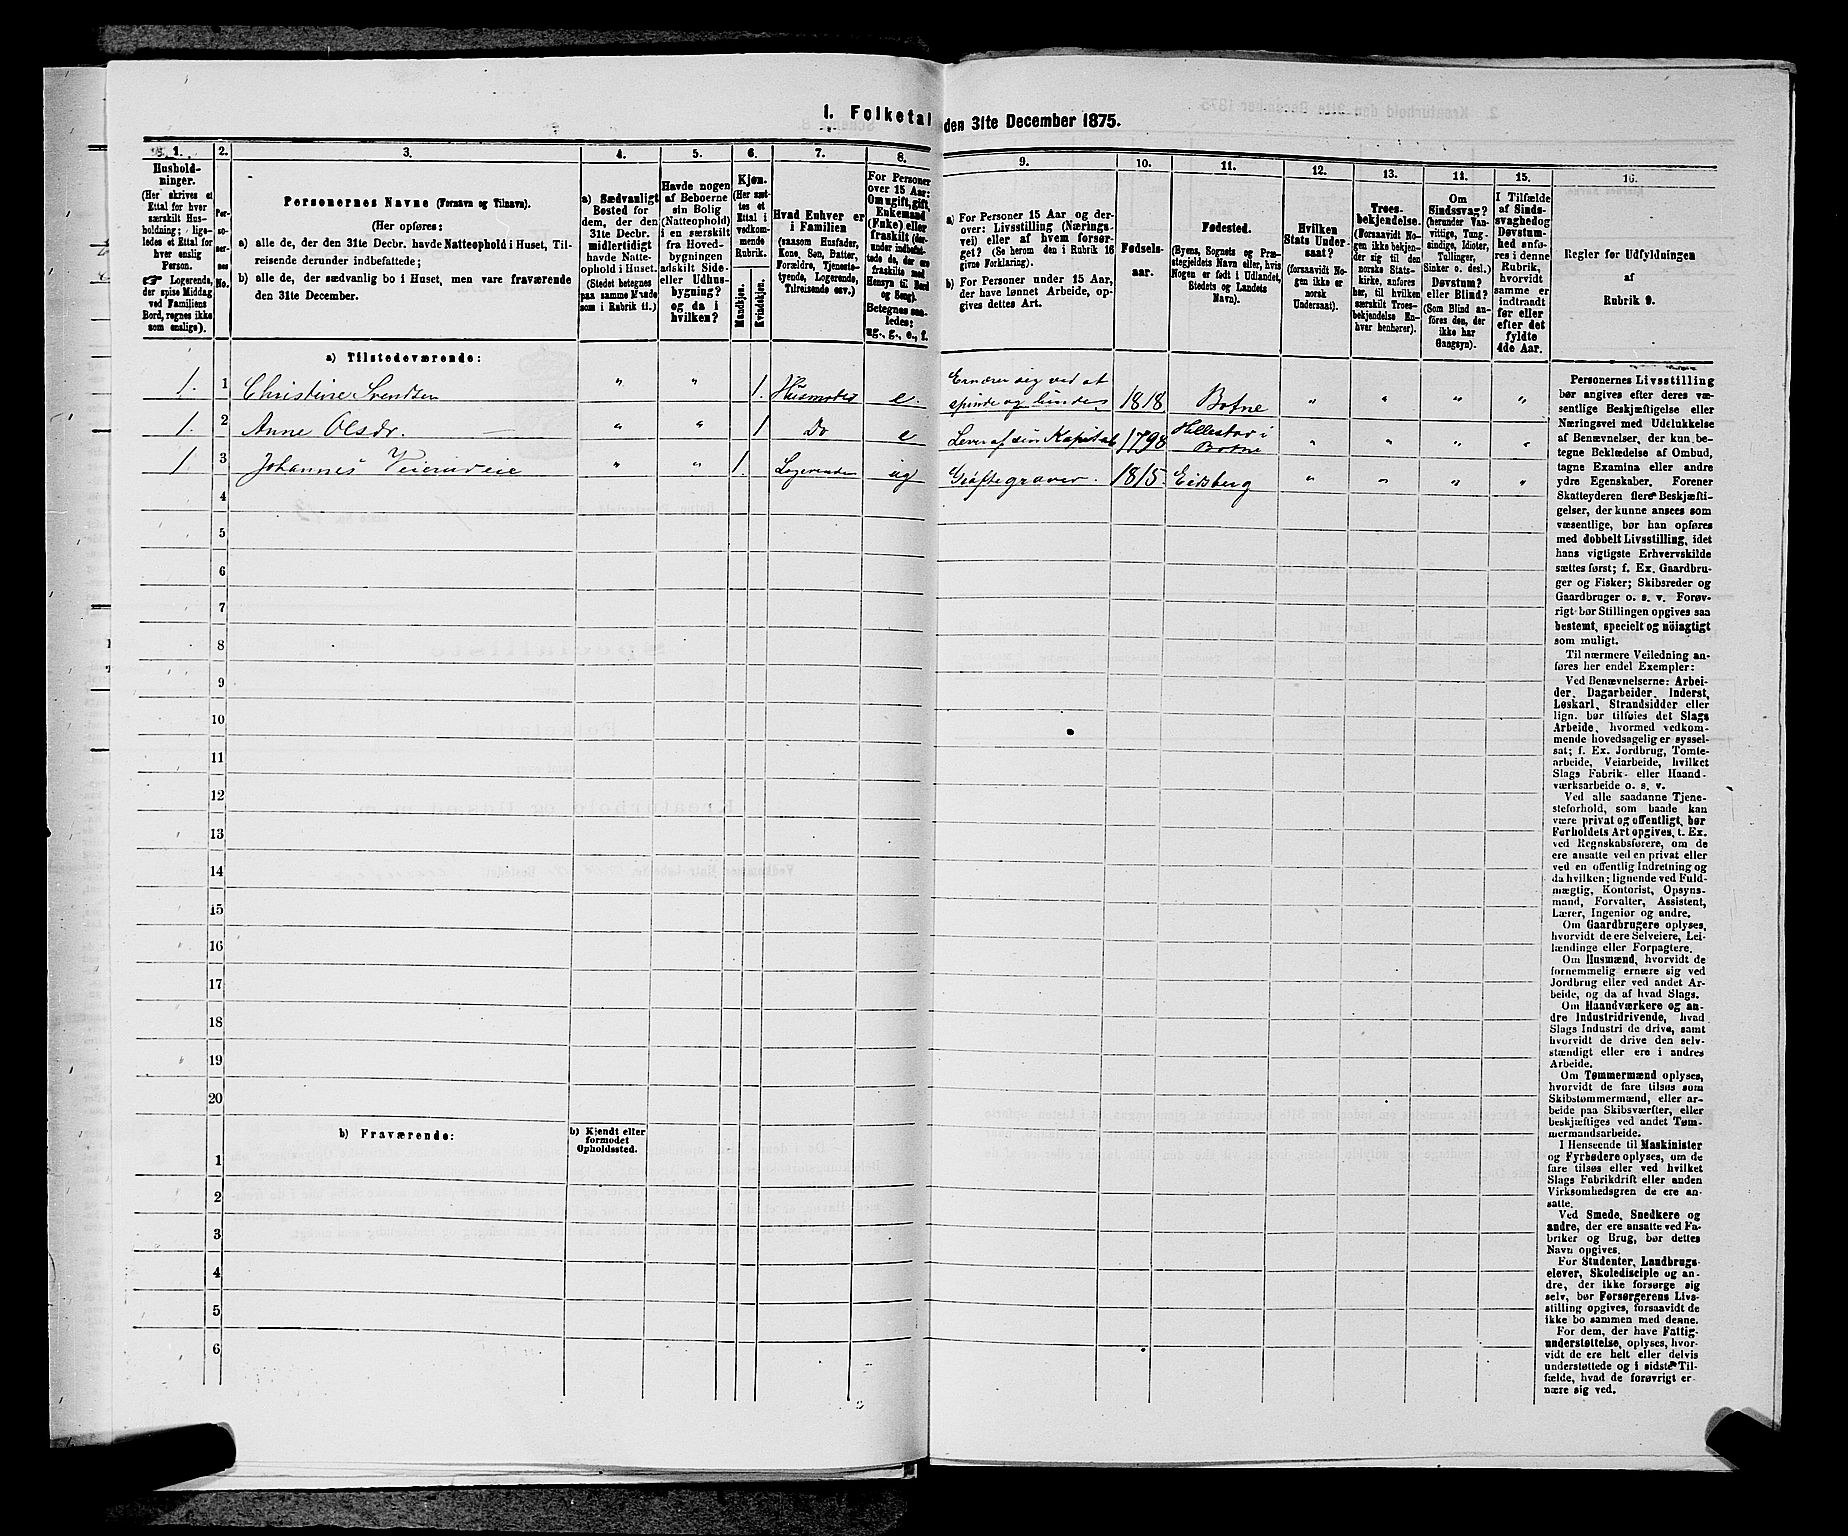 1. Folketal den 31te December 1875.
1.
Hushold-
ninger.
(Her skrives et
Ettal for hver
særskilt Hus-
holdning; lige-
ledes et Ettal for
hver enslig
Person.
Logerende,
der spise Middag
ved Familiens
Bord, regnes ikke
som enslige).
2.
Per-
so-
ner-
nes
No.
3.
Personernes Navne (Fornavn og Tilnavn).
(Her opføres:
a) alle de, der den 31te Decbr. havde Natteophold i Huset, Til-
reisende derunder indbefattede;
b) alle de, der sædvanlig bo i Huset, men vare fraværende
den 31te December.
4.
a) Sædvanligt
Bosted for
dem, der den
31te Decbr.
midlertidigt
havde Natte-
ophold i Huset.
(Stedet betegnes
paa samme Maade
som i Rubrik 11.)
5.
Havde nogen
af Beboerne
sin Bolig
(Natteophold)
i en særskilt
fra Hoved-
bygningen
adskilt Side-
eller Udhus-
bygning?
og da i
hvilken?
6.
Kjøn.
(Her sæt-
tes et
Ettal i
vedkom-
mende
Rubrik.
Mandkjøn.
Kvindekjøn.
7.
Hvad Enhver er
i Familien
(saasom Husfader,
Kone, Søn, Datter,
Forældre, Tjeneste-
tyende, Logerende,
Tilreisende osv.)
8.
For Personer
over 15 Aar:
Om ugift, gift,
Enkemand
(Enke) eller
fraskilt (der-
under indbefat-
tede de, der ere
fraskilte med
Hensyn til Bord
og Seng).
Betegnes saa-
ledes:
ug., g., e., f.
9.
a) For Personer 15 Aar og der-
over: Livsstilling (Nærings-
vei) eller af hvem forsør-
get? (Se herom den i Rubrik 16
givne Forklaring).
b) For Personer under 15 Aar,
der have lønnet Arbeide, op-
gives dettes Art.
10.
Fødsels-
aar.
11.
Fødested.
(Byens, Sognets og Præ-
stegjeldets Navn eller, hvis
Nogen er født i Udlandet,
Stedets og Landets
Navn).
12.
Hvilken
Stats Under-
saat?
(forsaavidt No-
gen ikke er
norsk
Undersaat).
13.
Troes-
bekjendelse.
(Forsaavidt No-
gen ikke bekjen-
der sig til den
norske Stats-
kirke, anføres
her, til hvilken
særskilt Troes-
bekjendelse En-
hver henhører).
14.
Om
Sindssvag?
(herunder Van-
vittige, Tung-
sindige, Idioter,
Tullinger,
Sinker o. desl.)
Døvstum?
eller Blind?
(Som Blind an-
føres den, der
ikke har
Gangsyn).
15.
I Tilfælde
af Sinds-
svaghed og
Døvstum-
hed anfø-
res i denne
Rubrik,
hvorvidt
samme er
indtraadt
før eller
efter det
fyldte
4de Aar.
16.
Regler for Udfyldningen
af
Rubrik 9.
a) Tilstedeværende:
1. 1 Christine Svendsen " " 1. Husmoder e Ernærer sig ved at spinde og binde. 1818 Botne " " " "
1. 2 Anne Olsdr. " " 1 Do e Lever af sin Kapital 1798 Hillestad i Botne " " " "
1. 3 Johannes " " 1. Logerende ug Grøftegraver. 1815. Eidsberg " " " "
4
5
6
7
8
9
10
11
12
13
14
15
16
17
18
19
20
b) Fraværende:
b) Kjendt eller
formodet
Opholdssted.
1
2
3
4
5
6
Personernes Livsstilling
bør angives efter deres væ-
sentlige Beskjæftigelse eller
Næringsvei med Udelukkelse
af Benævnelser, der kun be-
tegne Beklædelse af Ombud,
tagne Examina eller andre
ydre Egenskaber. Forener
Skatteyderen flere Beskjæfti-
gelser, der kunne ansees som
væsentlige, bør han opføres
med dobbelt Livsstilling, idet
hans vigtigste Erhvervskilde
sættes først; f. Ex. Gaardbru-
ger og Fisker; Skibsreder og
Gaardbruger o. s. v. Forøv-
rigt bør Stillingen opgives saa
bestemt, specielt og nöiagtigt
som muligt.
Til nærmere Veiledning an-
føres her endel Exempler:
Ved Benævnelserne: Arbei-
der, Dagarbeider, Inderst,
Løskarl, Strandsidder eller
lign. bør tilføies det Slags
Arbeide, hvormed vedkom-
mende hovedsagelig er syssel-
sat; f. Ex. Jordbrug, Tomte-
arbeide, Veiarbeide, hvilket
Slags Fabrik- eller Haand-
værksarbeide o. s. v.
Ved alle saadanne Tjene-
steforhold, som baade kan
være privat og offentligt, bør
Forholdets Art opgives, t. Ex.
ved Regnskabsførere, om de
ere ansatte ved en privat eller
ved en offentlig Indretning og
da hvilken; lignende ved Fuld-
mægtig, Kontorist, Opsyns-
mand, Forvalter, Assistent,
Lærer, Ingeniør og andre.
Om Gaardbrugere oplyses,
hvorvidt de ere Selveiere, Lei-
lændinge eller Forpagtere.
Om Husmænd, hvorvidt de
fornemmelig ernære sig ved
Jordbrug eller ved andet Ar-
beide, og da af hvad Slags.
Om Haandværkere og an-
dre Industridrivende, hvad
Slags Industri de drive, samt
hvorvidt de drive den selv-
stændigt eller ere i andres
Arbeide.
Om Tømmermænd oplyses,
hvorvidt de fare tilsøs som
Skibstømmermænd, eller ar-
beide paa Skibsværfter, eller
beskjæftiges ved andet Tøm-
mermandsarbeide.
I Henseende til Maskinister
og Fyrbødere oplyses, om de
fare tilsøs eller ved hvilket
Slags Fabrikdrift eller anden
Virksomhedsgren de ere an-
satte.
Ved Smede, Snedkere og
andre, der ere ansatte ved Fa-
briker og Brug, bør dettes
Navn opgives.
For Studenter, Landbrugs-
elever, Skoledisciple og an-
dre, der ikke forsørge sig
selv, bør Forsørgerens Livs-
stilling opgives, forsaavidt de
ikke bo sammen med denne.
For dem, der have Fattig-
understøttelse, oplyses, hvor-
vidt de ere helt eller delvis
understøttede og i sidste Til-
fælde, hvad de forøvrigt er-
nære sig ved.